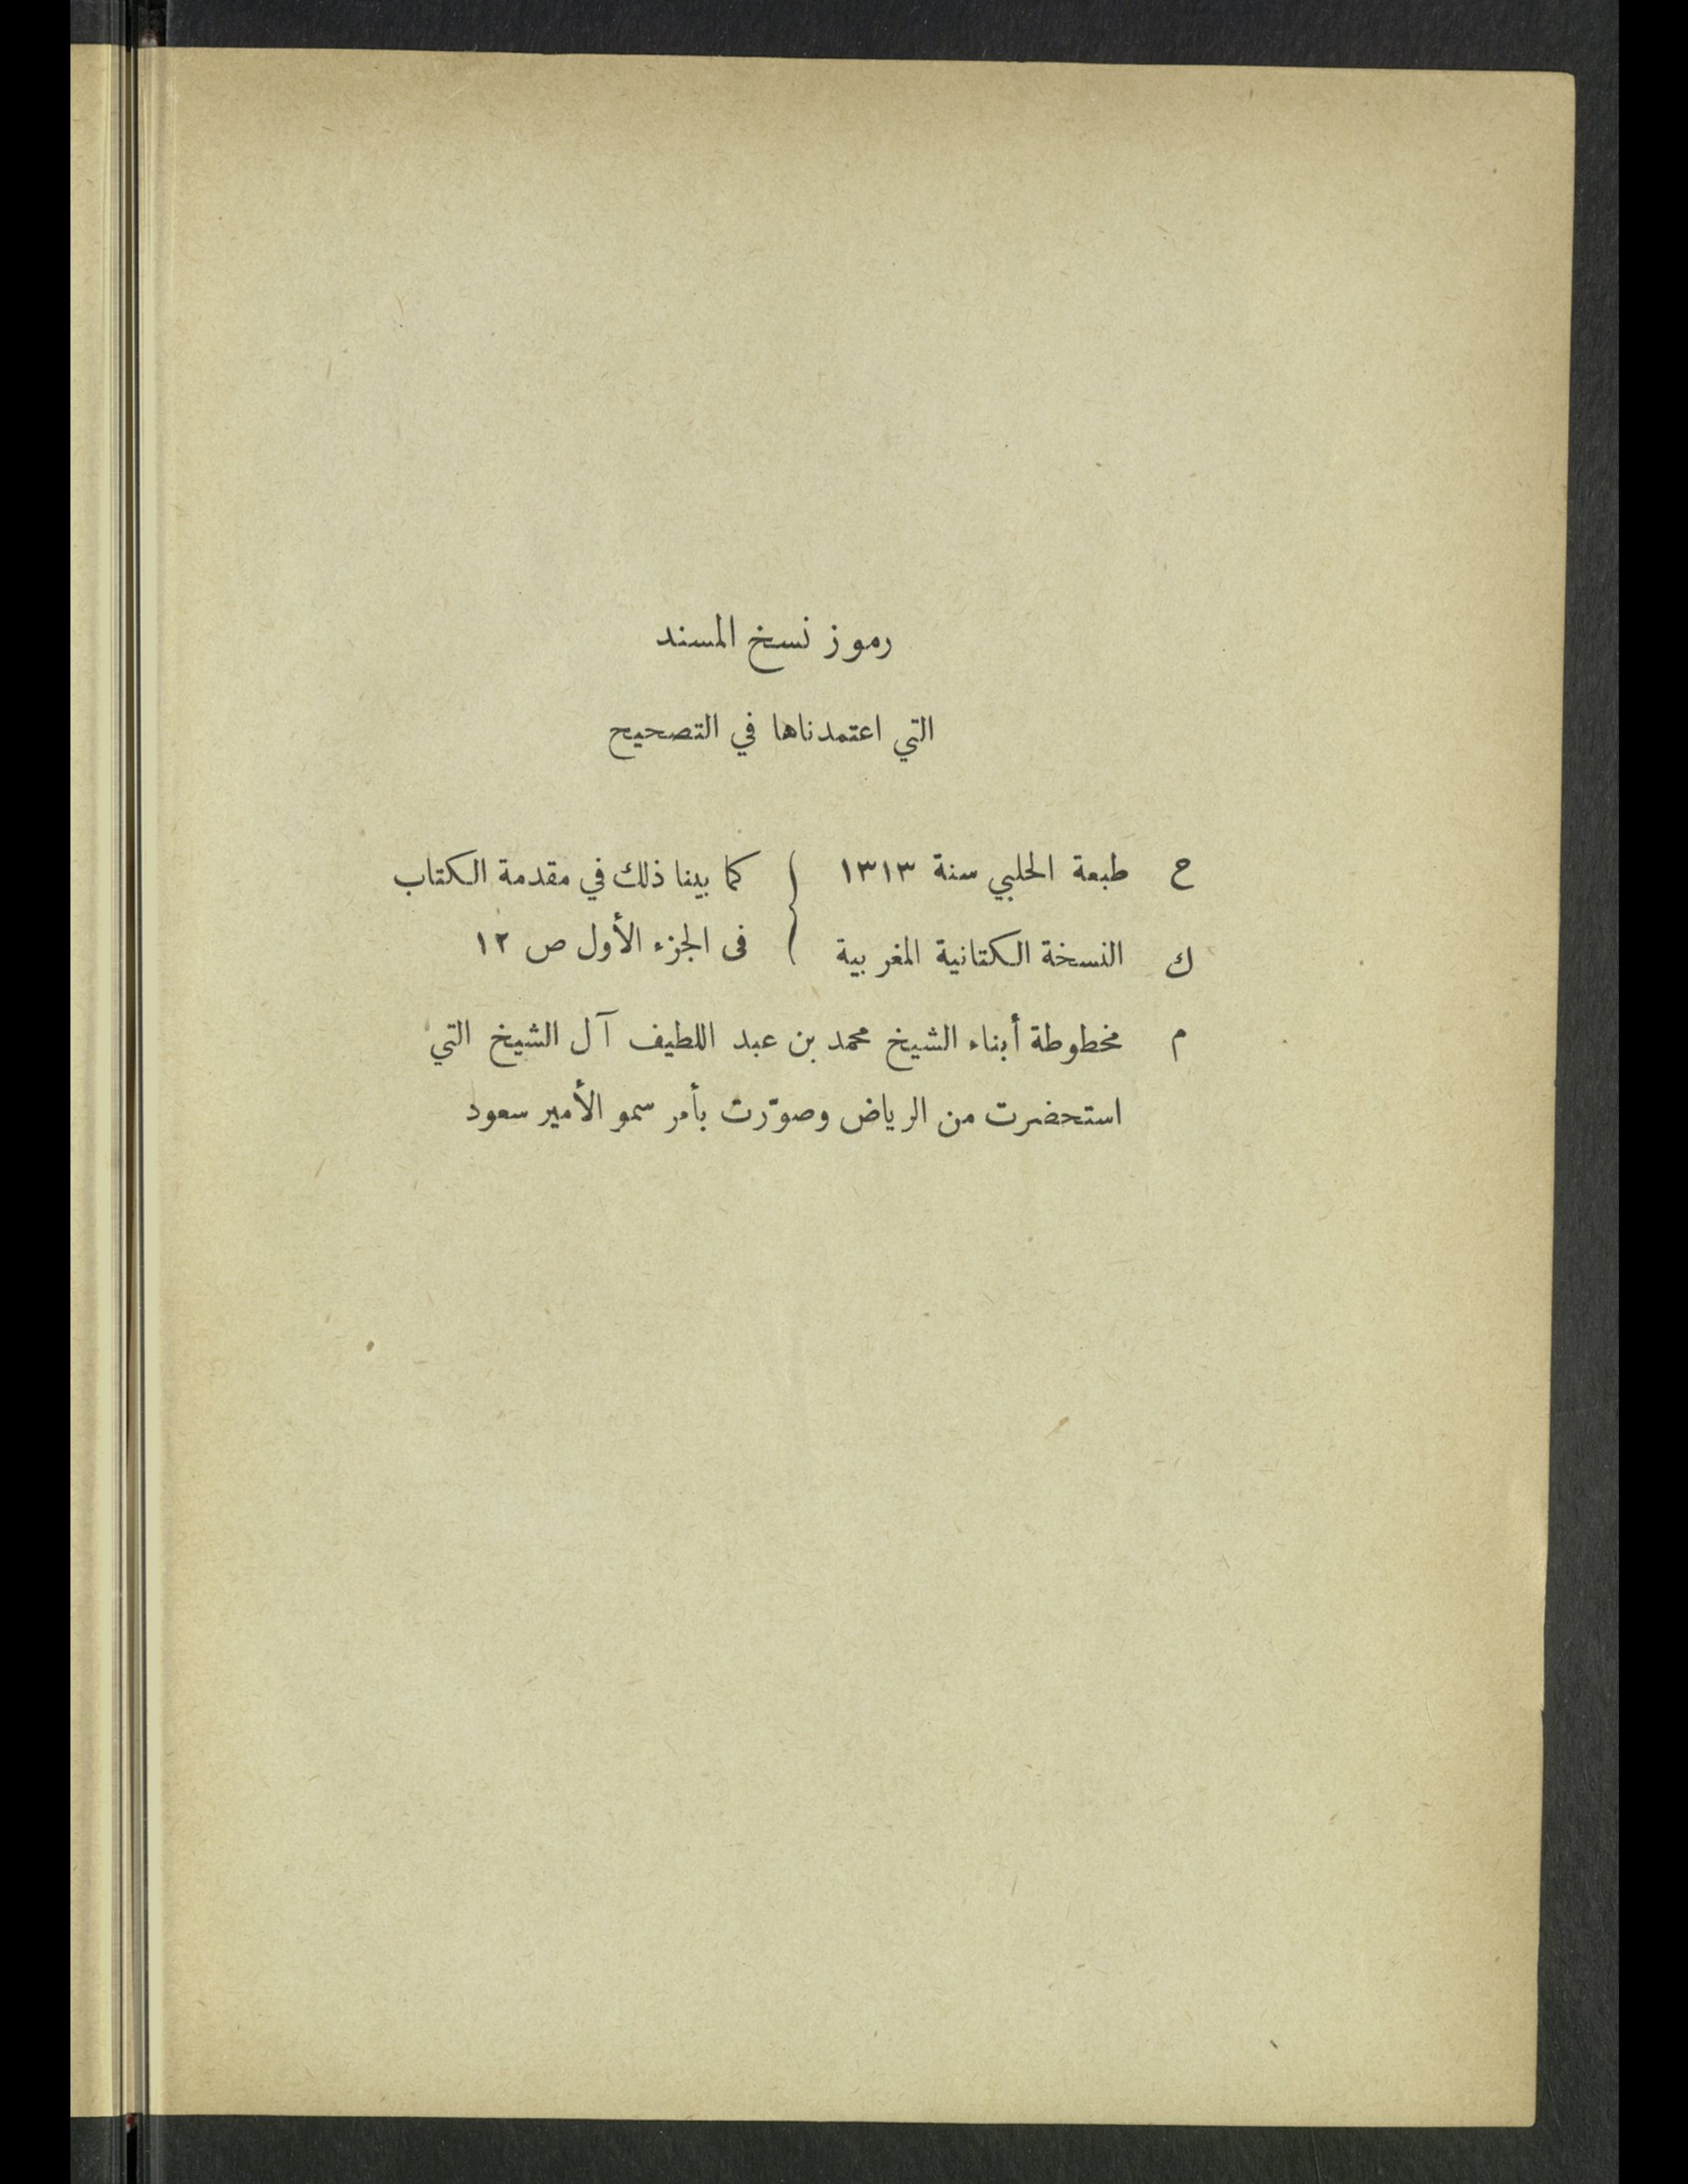 رموز نسخ المسند
التي اعتمدناها في التصحيح
ح طبعة الحلبي سنة ١٣١٣ } كما بينا ذلك في مقدمة الكتاب
ك النسخة الكتانية المغربية } فى الجزء الأول ص ١٢
م مخطوطة أبناء الشيخ محمد بن عبد اللطيف آل الشيخ التي
استحضرت من الرياض وصوّرت بأمر سمو الأمير سعود